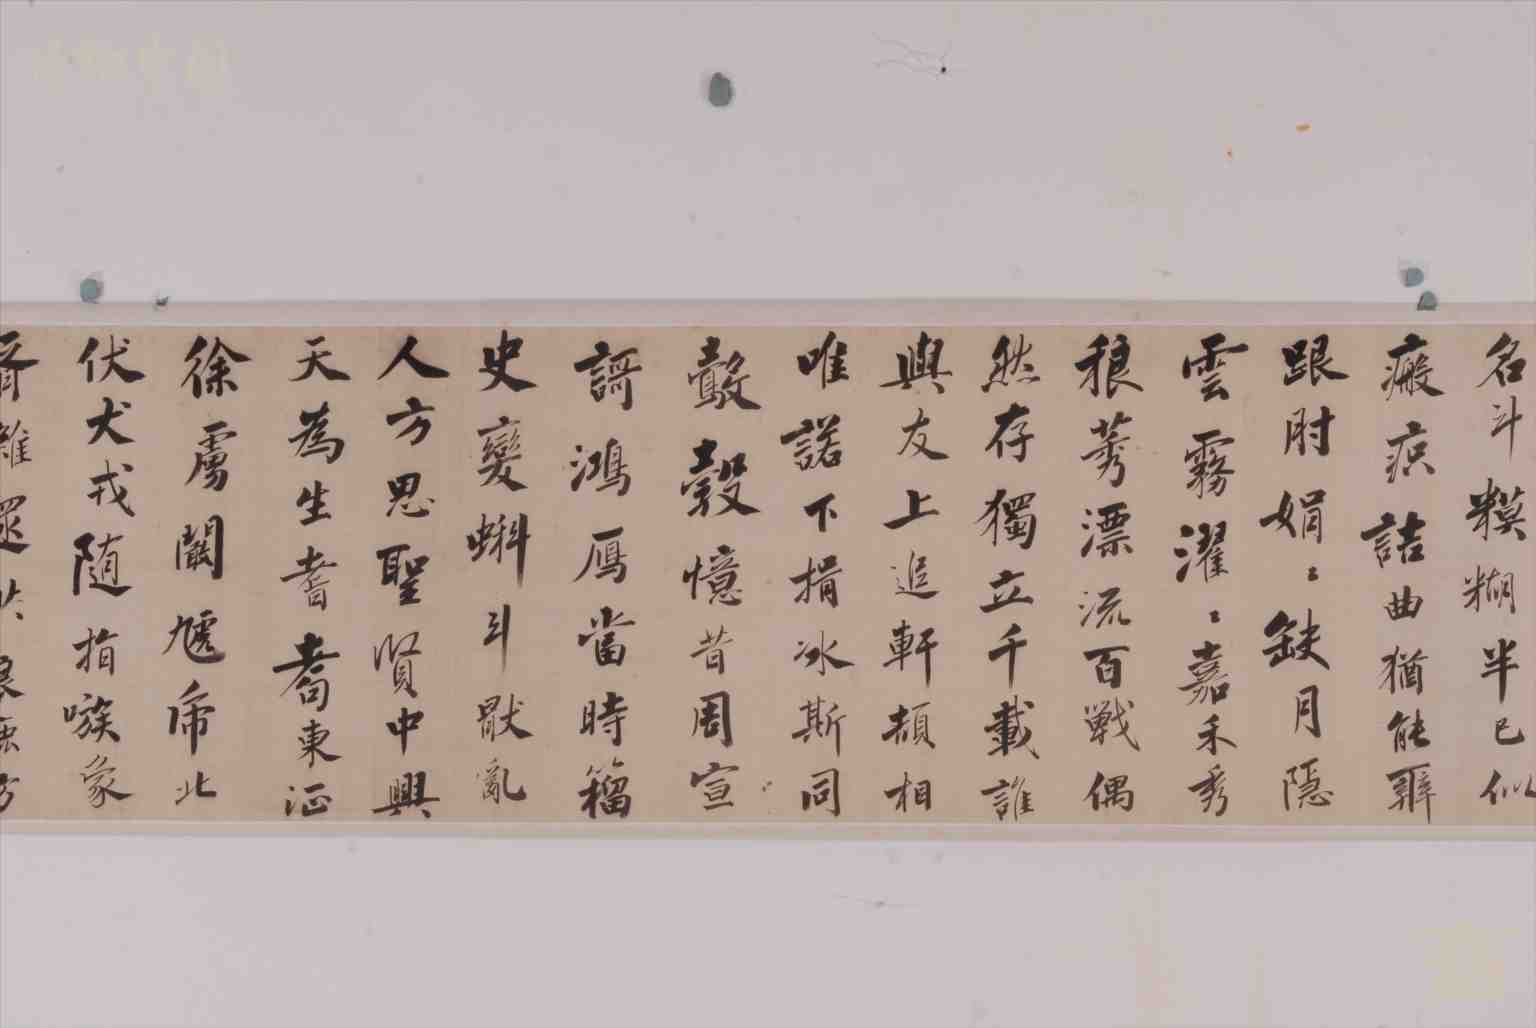 名斗糢糊半已似
瘢詰曲猶能辨
跟肘娟〻缺月隱
雲霧濯〻嘉禾秀
稂莠漂流百戰偶
然存獨立千載誰
與友上追軒頡相
唯諾下揖冰斯同
鷇㝅憶昔周宣
謌鴻鴈當時籀
史變蝌斗猒亂
人方思聖賢中興
天為生耆耇東征
徐虜闞虓乕北
伏犬戎随指嗾象
胥雜